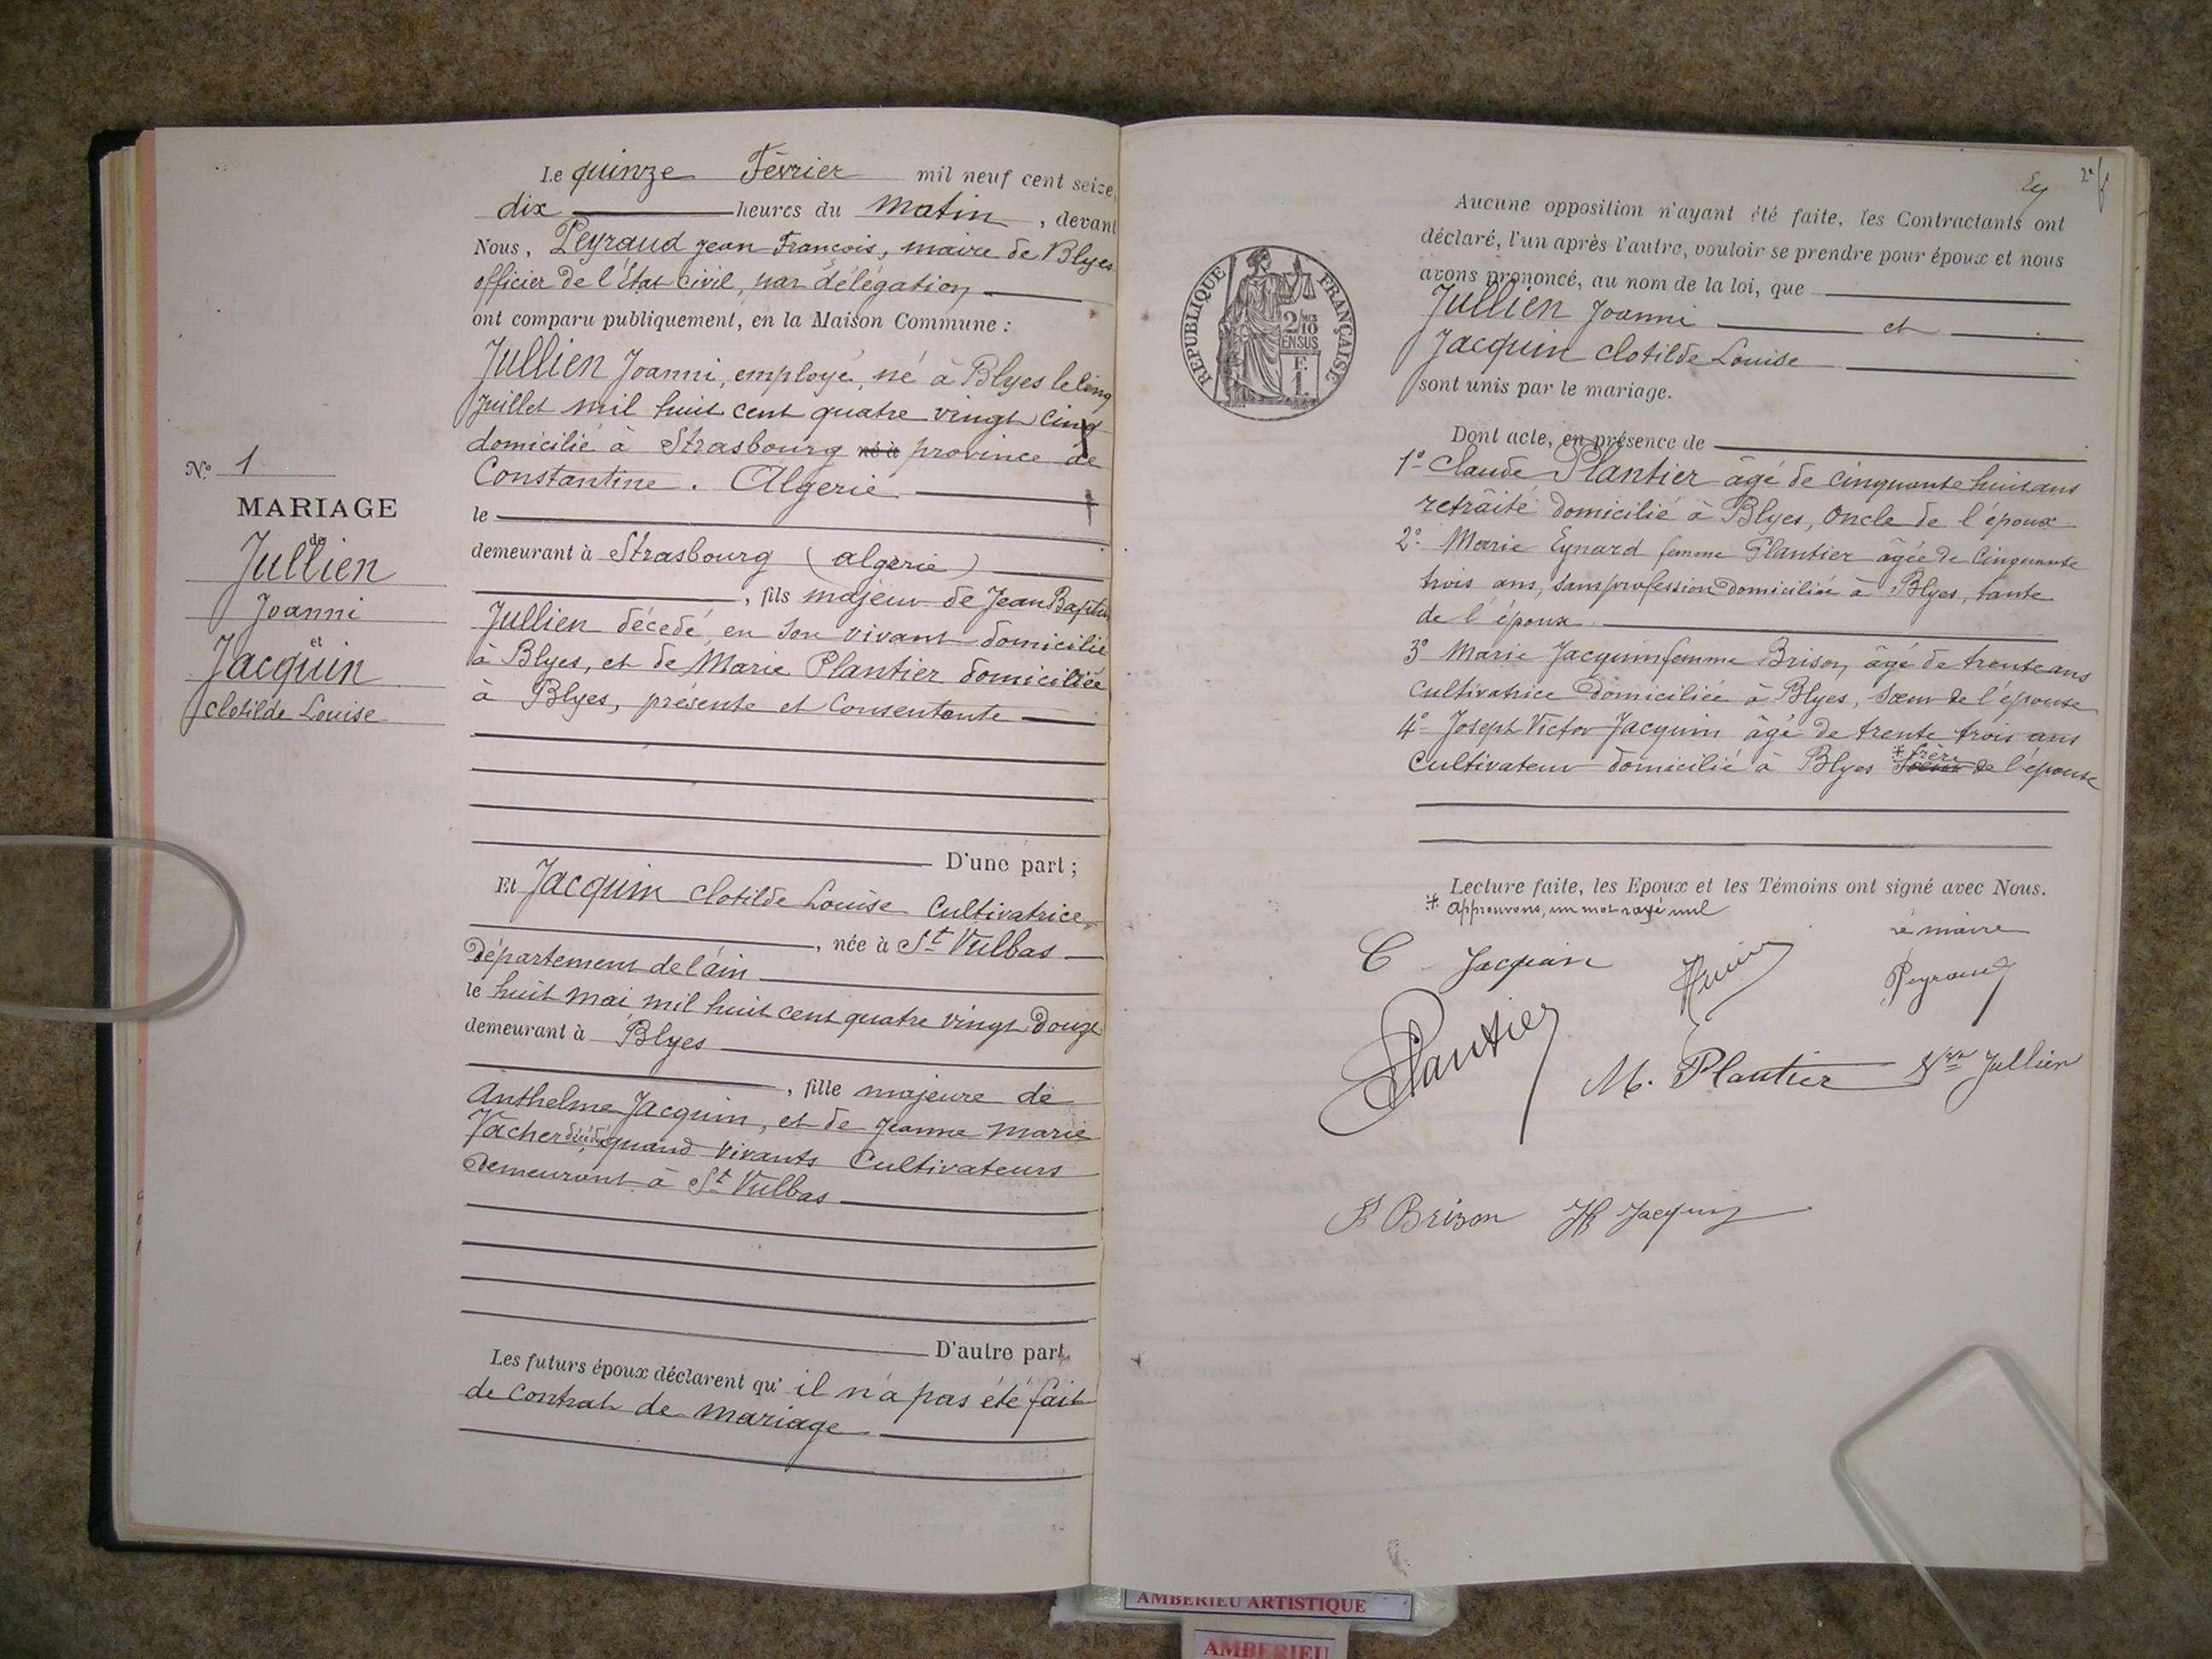 Le quinze Février mil neuf cent seize,
dix heures du matin, devant
Nous, Peyraud Jean François, maire de Blyes
officier de l'État civil, par délégation
ont comparu publiquement, en la Maison Commune :
Jullien Joanni, employé, né à Blyes le cinq
Juillet mil huit cent quatre vingt cinq
domicilié à Strasbourg né à province de
Constantine. Algerie.
le
demeurant à Strasbourg (algerie)
, fils majeur de Jean Baptiste
Jullien décedé, en son vivant domicilié
à Blyes, et de Marie Plantier domiciliée
à Blyes, présente et Consentante
D'une part ;
Et Jacquin Clotilde Louise Cultivatrice
, née à St Vulbas
Département de l'ain
le huit mai mil huit cent quatre vingt Douze
demeurant à Blyes
, fille majeure de
Anthelme Jacquin, et de Jeanne Marie
Vacher décédés quand vivants Cultivateurs
Demeurant à St Vulbas
D'autre part.
Les futurs époux déclarent qu' il n'a pas été fait
de Contrat de mariage
No 1
MARIAGE
de
Jullien
Joanni
et
Jacquin
Clotilde Louise
Ey 2e f
Aucune opposition n'ayant été faite, les Contractants ont
déclaré, l'un après l'autre, vouloir se prendre pour époux et nous
avons prononcé, au nom de la loi, que
Jullien Joanni et
Jacquin Clotilde Louise
sont unis par le mariage.
RÉPUBLIQUE FRANÇAISE
2/10
EN SUS
F.
1.
Dont acte, en présence de
1° Claude Plantier âgé de cinquante huit ans
retraité domicilié à Blyes, Oncle de l'époux
2° Marie Eynard femme Plantier âgée de Cinquante
trois ans, sans profession Domiciliée à Blyes, tante
de l'époux
3° Marie Jacquin femme Brison, âgé de trente ans
Cultivatrice Domiciliée à Blyes, Sœur de l'épouse
4° Joseph Victor Jacquin âgé de trente trois ans
Cultivateur domicilié à Blyes * frère Soeur de l'épouse
Lecture faite, les Epoux et les Témoins ont signé avec Nous.
* Approuvons, un mot rayé nul
Le maire
C Jacquin
Peyraud
Plantier
M. Plantier Vve Jullien
Brison
Jacquin
AMBERIEU ARTISTIQUE
AMBERIEU